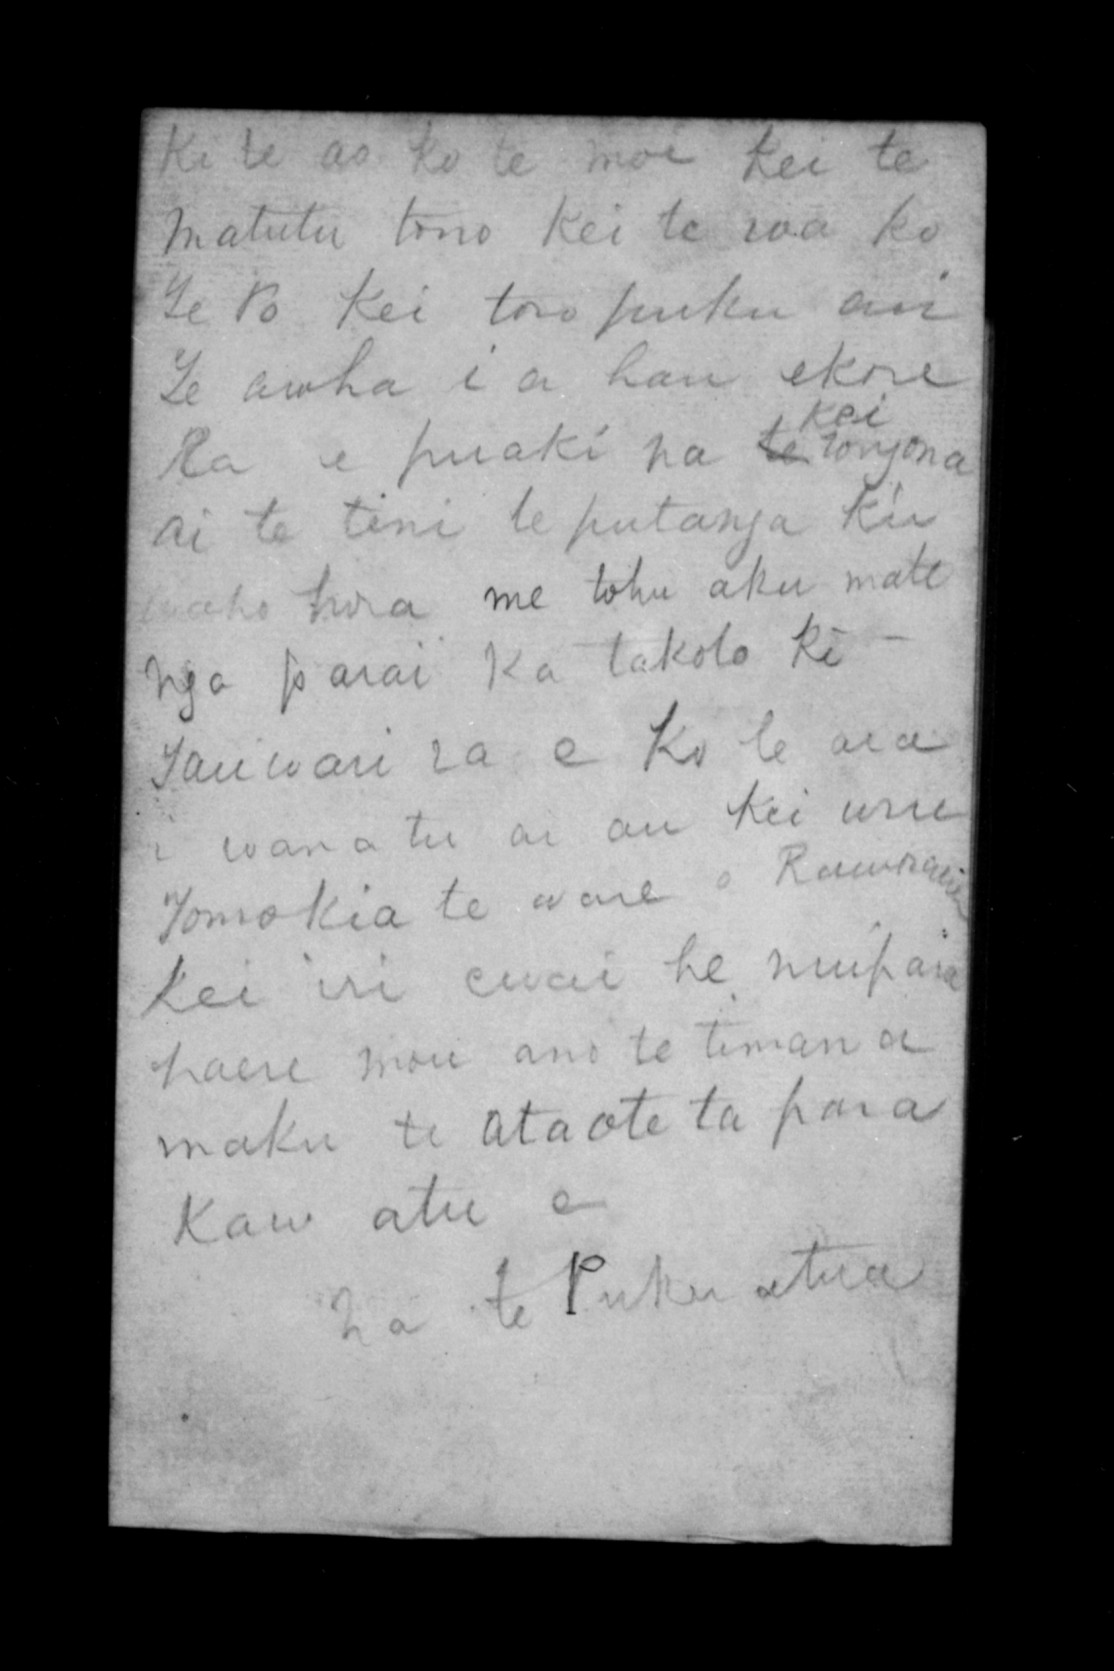 Ki te ao ko te moi kei te
Matutu tono kei te roa ko
Te Po kei toro puku ai
Te awha i a hau ekore
Ra e puaki na kei rongona
ai te tini te putanga kii
waho hora me tohu aku mate
nga parai ka takoto ki -
Tauwari ra e Ko te ara
i wanatu ai au kei uru
Tomokia te ware o
Kei iri ewai he muipara
haere mou ano te timana
maku te ataote ta para
Kaw atu e
na te Pukuatua